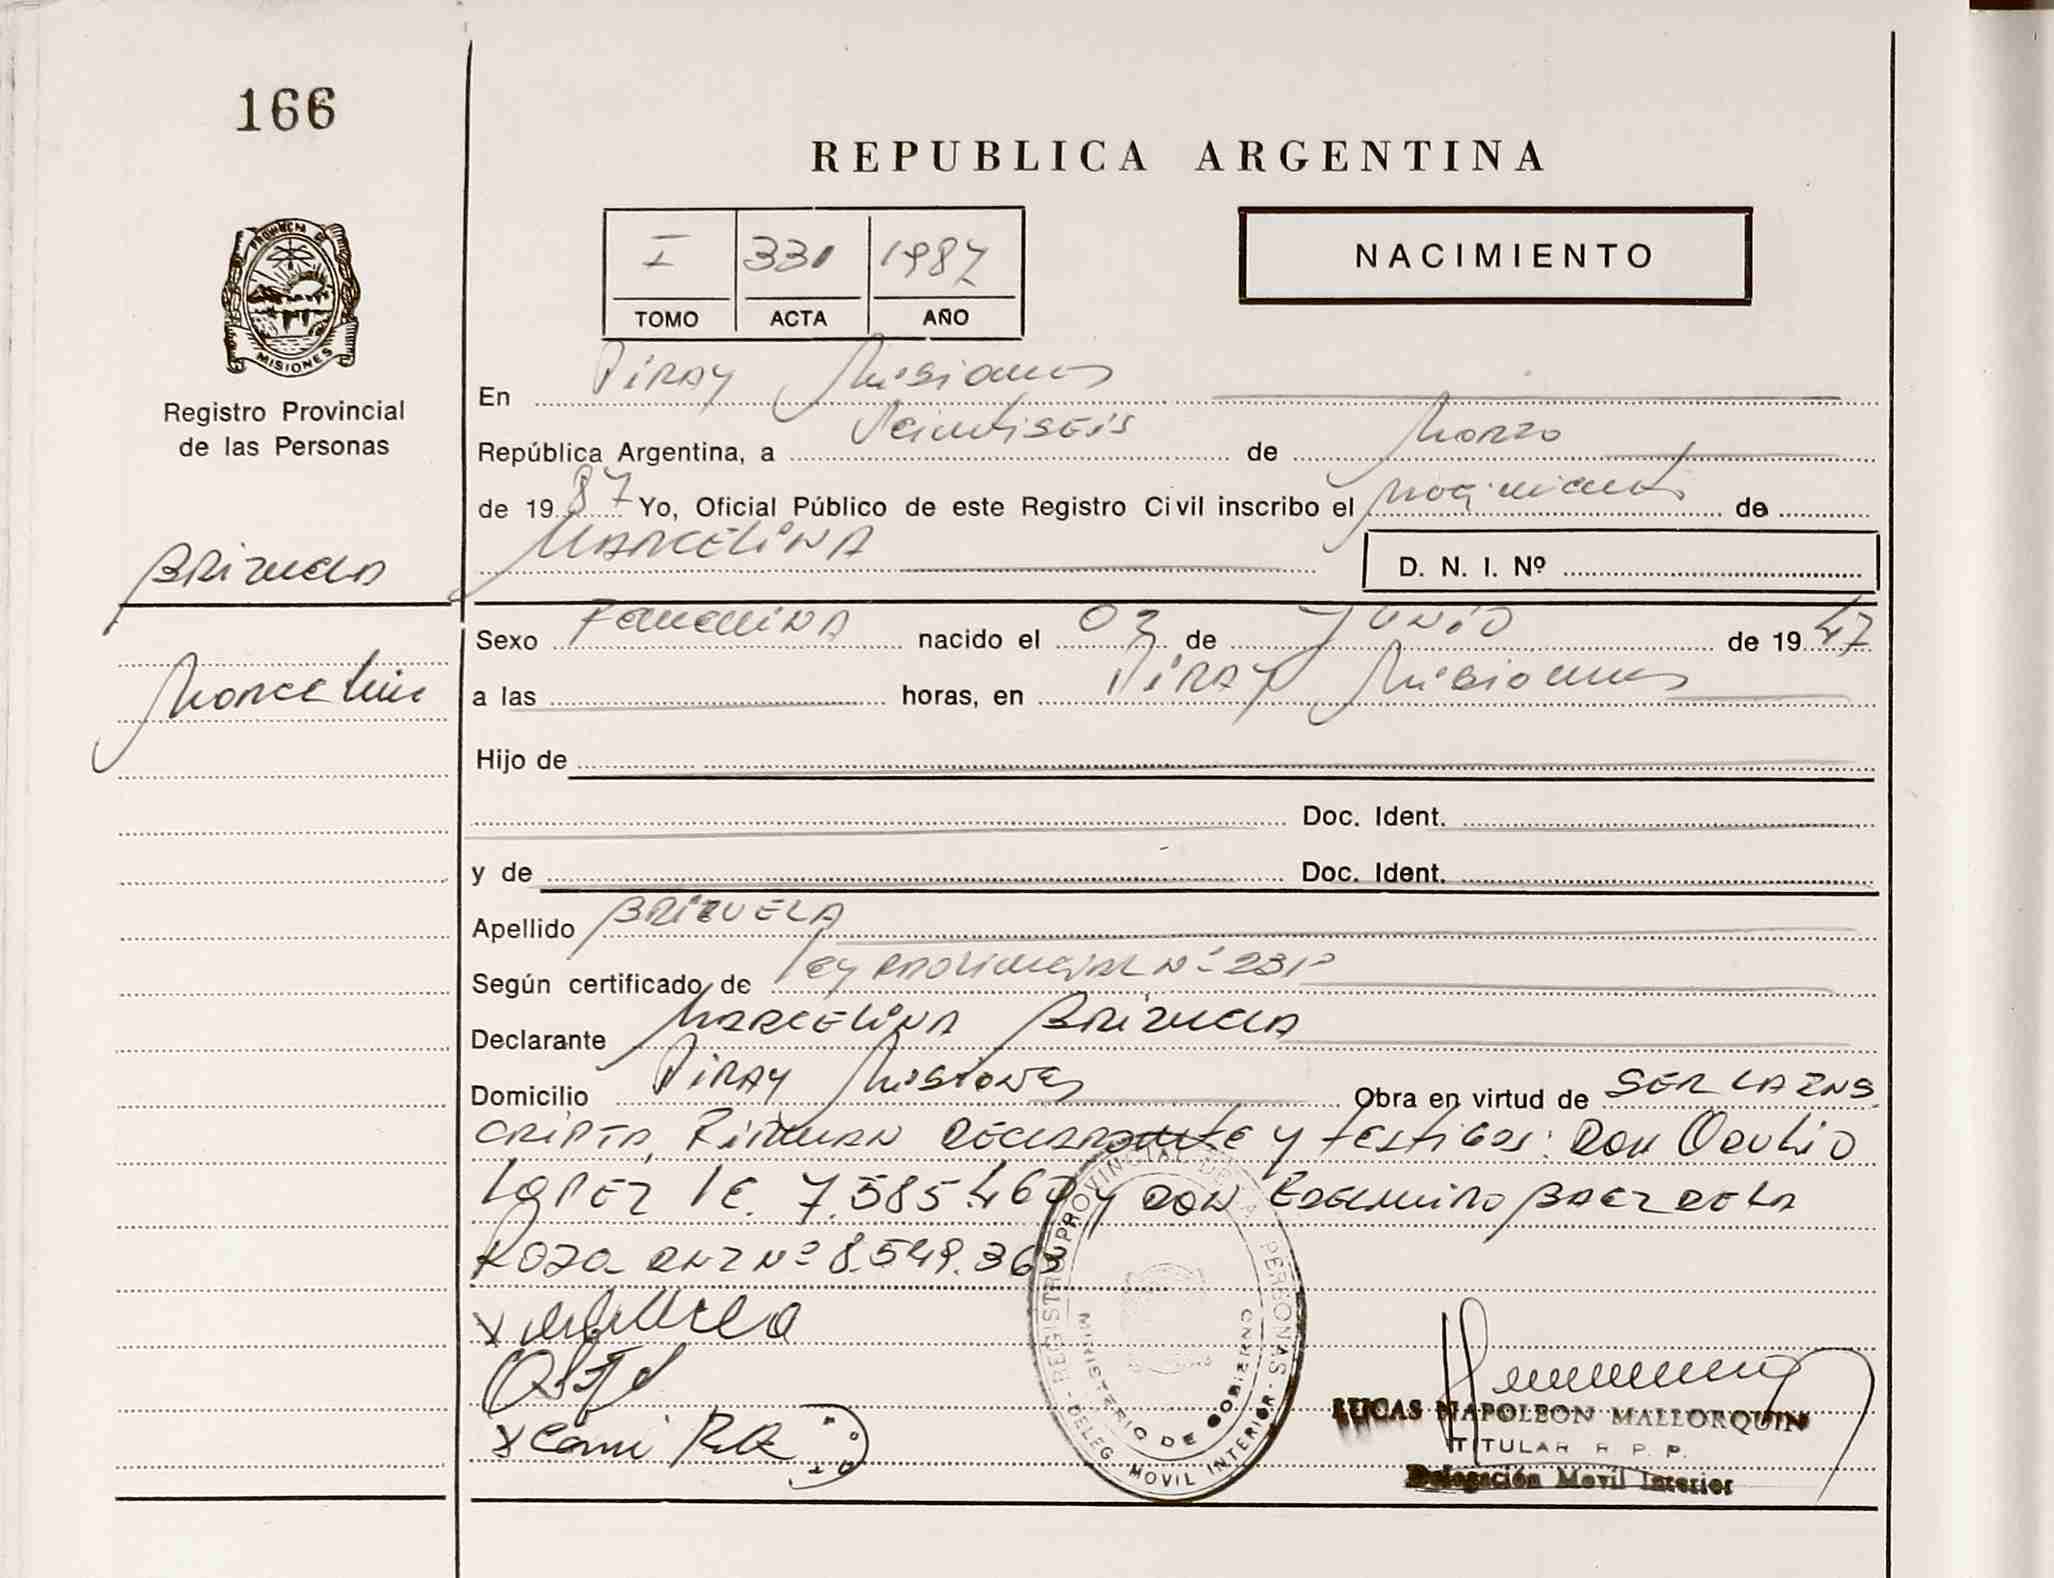 166
REPUBLICA ARGENTINA
I 331 1987
TOMO ACTA AÑO
NACIMIENTO
PROVINCIA DE
MISIONES
Registro Provincial
de las Personas
En Piray Misiones
República Argentina, a Veintiseis de Marzo
de 1987 Yo, Oficial Público de este Registro Civil inscribo el nacimiento de
MARCELINA D. N. I. Nº
Brizuela
Marcelina
Sexo Femenina nacido el 03 de JUNIO de 1947
a las horas, en Piray Misiones
Hijo de
Doc. Ident.
y de Doc. Ident.
Apellido BRIZUELA
Según certificado de Ley Provincial Nº
Declarante Marcelina Brizuela
Domicilio Piray Misiones Obra en virtud de SER LA INS
CRIPTA, Firman Declarante y testigos: Don
Lopez LE. 7.585.467 y Don Edelmiro Baez de la
Roza DNI Nº 8.549.363
REGISTRO PROVINCIAL DE LAS PERSONAS
MINISTERIO DE GOBIERNO
DELEG. MOVIL INTERIOR
LUCAS NAPOLEON MALLORQUIN
TITULAR R. P. P.
Delegación Movil Interior